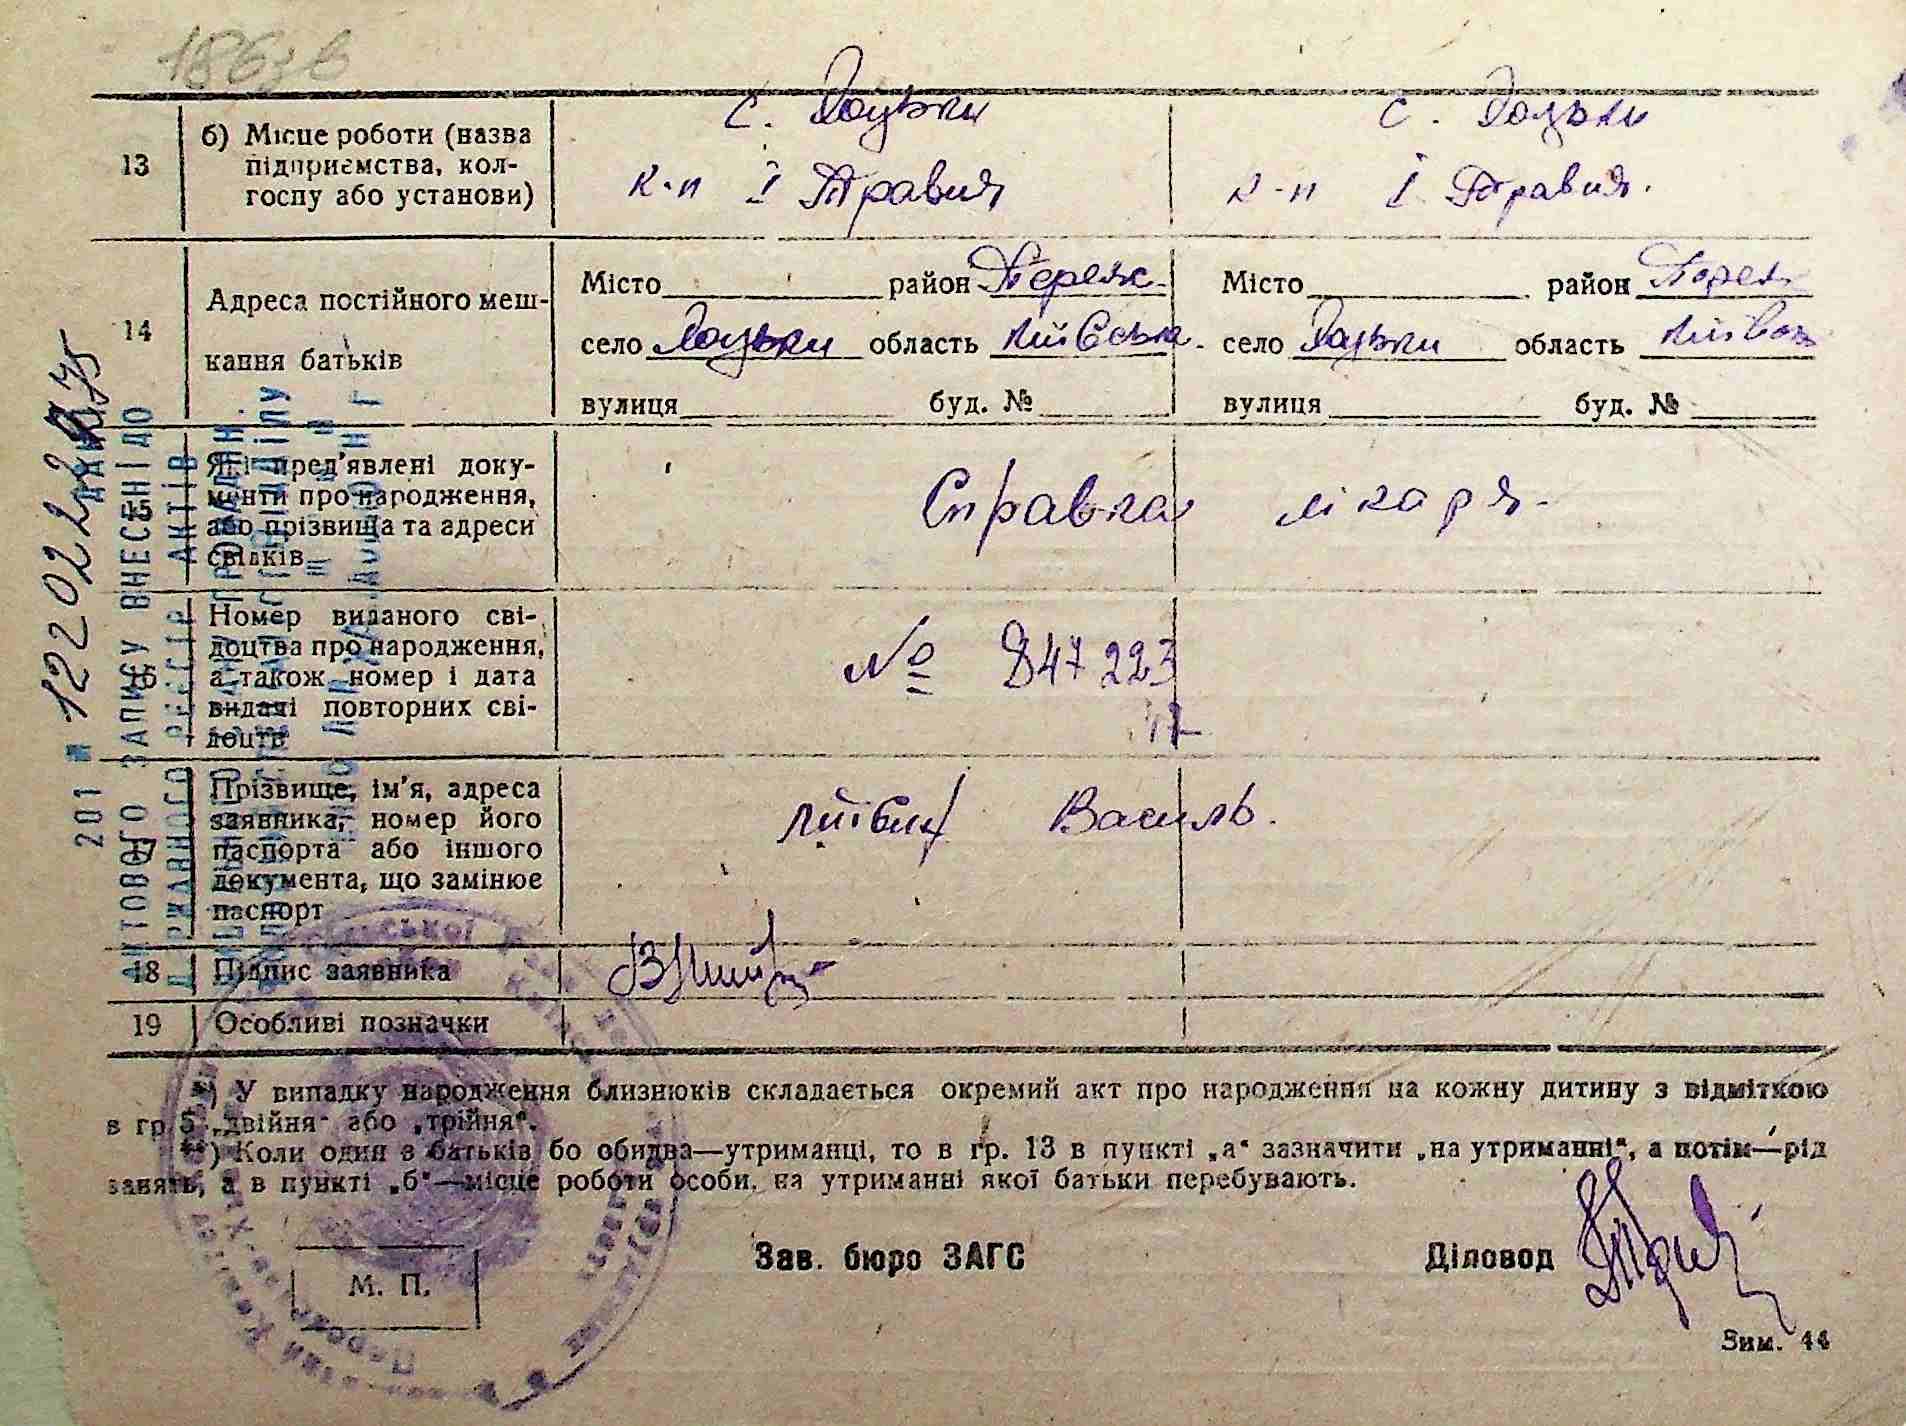 186 зв
13
б) Місце роботи (назва
підприємства, кол-
госпу або установи)
с. Гоцьки
к-п І Травня
с. Гоцьки
к-п І Травня.
14
Адреса постійного меш-
кання батьків
Місто район Переяс.
село Гоцьки область Київськ.
вулиця буд. №
Місто район Переяс
село Гоцьки область Київськ
вулиця буд. №
15
Які пред'явлені доку-
менти про народження,
або прізвища та адреси
свідків
Справка лікаря.
16
Номер виданого сві-
доцтва про народження,
а також номер і дата
видачі повторних сві-
доцтв
№ 847223
17
Прізвище, ім'я, адреса
заявника, номер його
паспорта або іншого
документа, що замінює
паспорт
Василь.
18
Підпис заявника
19
Особливі позначки
*) У випадку народження близнюків складається окремий акт про народження на кожну дитину з відміткою
в гр. 5 „двійня“ або „трійня“.
**) Коли один з батьків бо обидва—утриманці, то в гр. 13 в пункті „а“ зазначити „на утриманні“, а потім—рід
занять, а в пункті „б“—місце роботи особи, на утриманні якої батьки перебувають.
М. П.
Зав. бюро ЗАГС
Діловод
Зим. 44
АКТОВОГО ЗАПИСУ ВНЕСЕНІ ДО
201